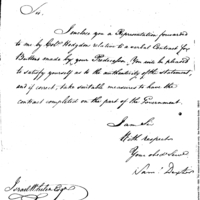 Sir,
I enclose you a Representation forwarded
to me by Col.º Hodgdon relative to a verbal Contract for
Buttons made by your Predecessor. You will be pleased
to satisfy yourself as to the authenticity of the statement,
and if correct, take suitable measures to have the
contract completed on the part of the Government.
I am Sir
With respect
Your obed Serv
Sam! Dexter
Israel Whelen Esqr